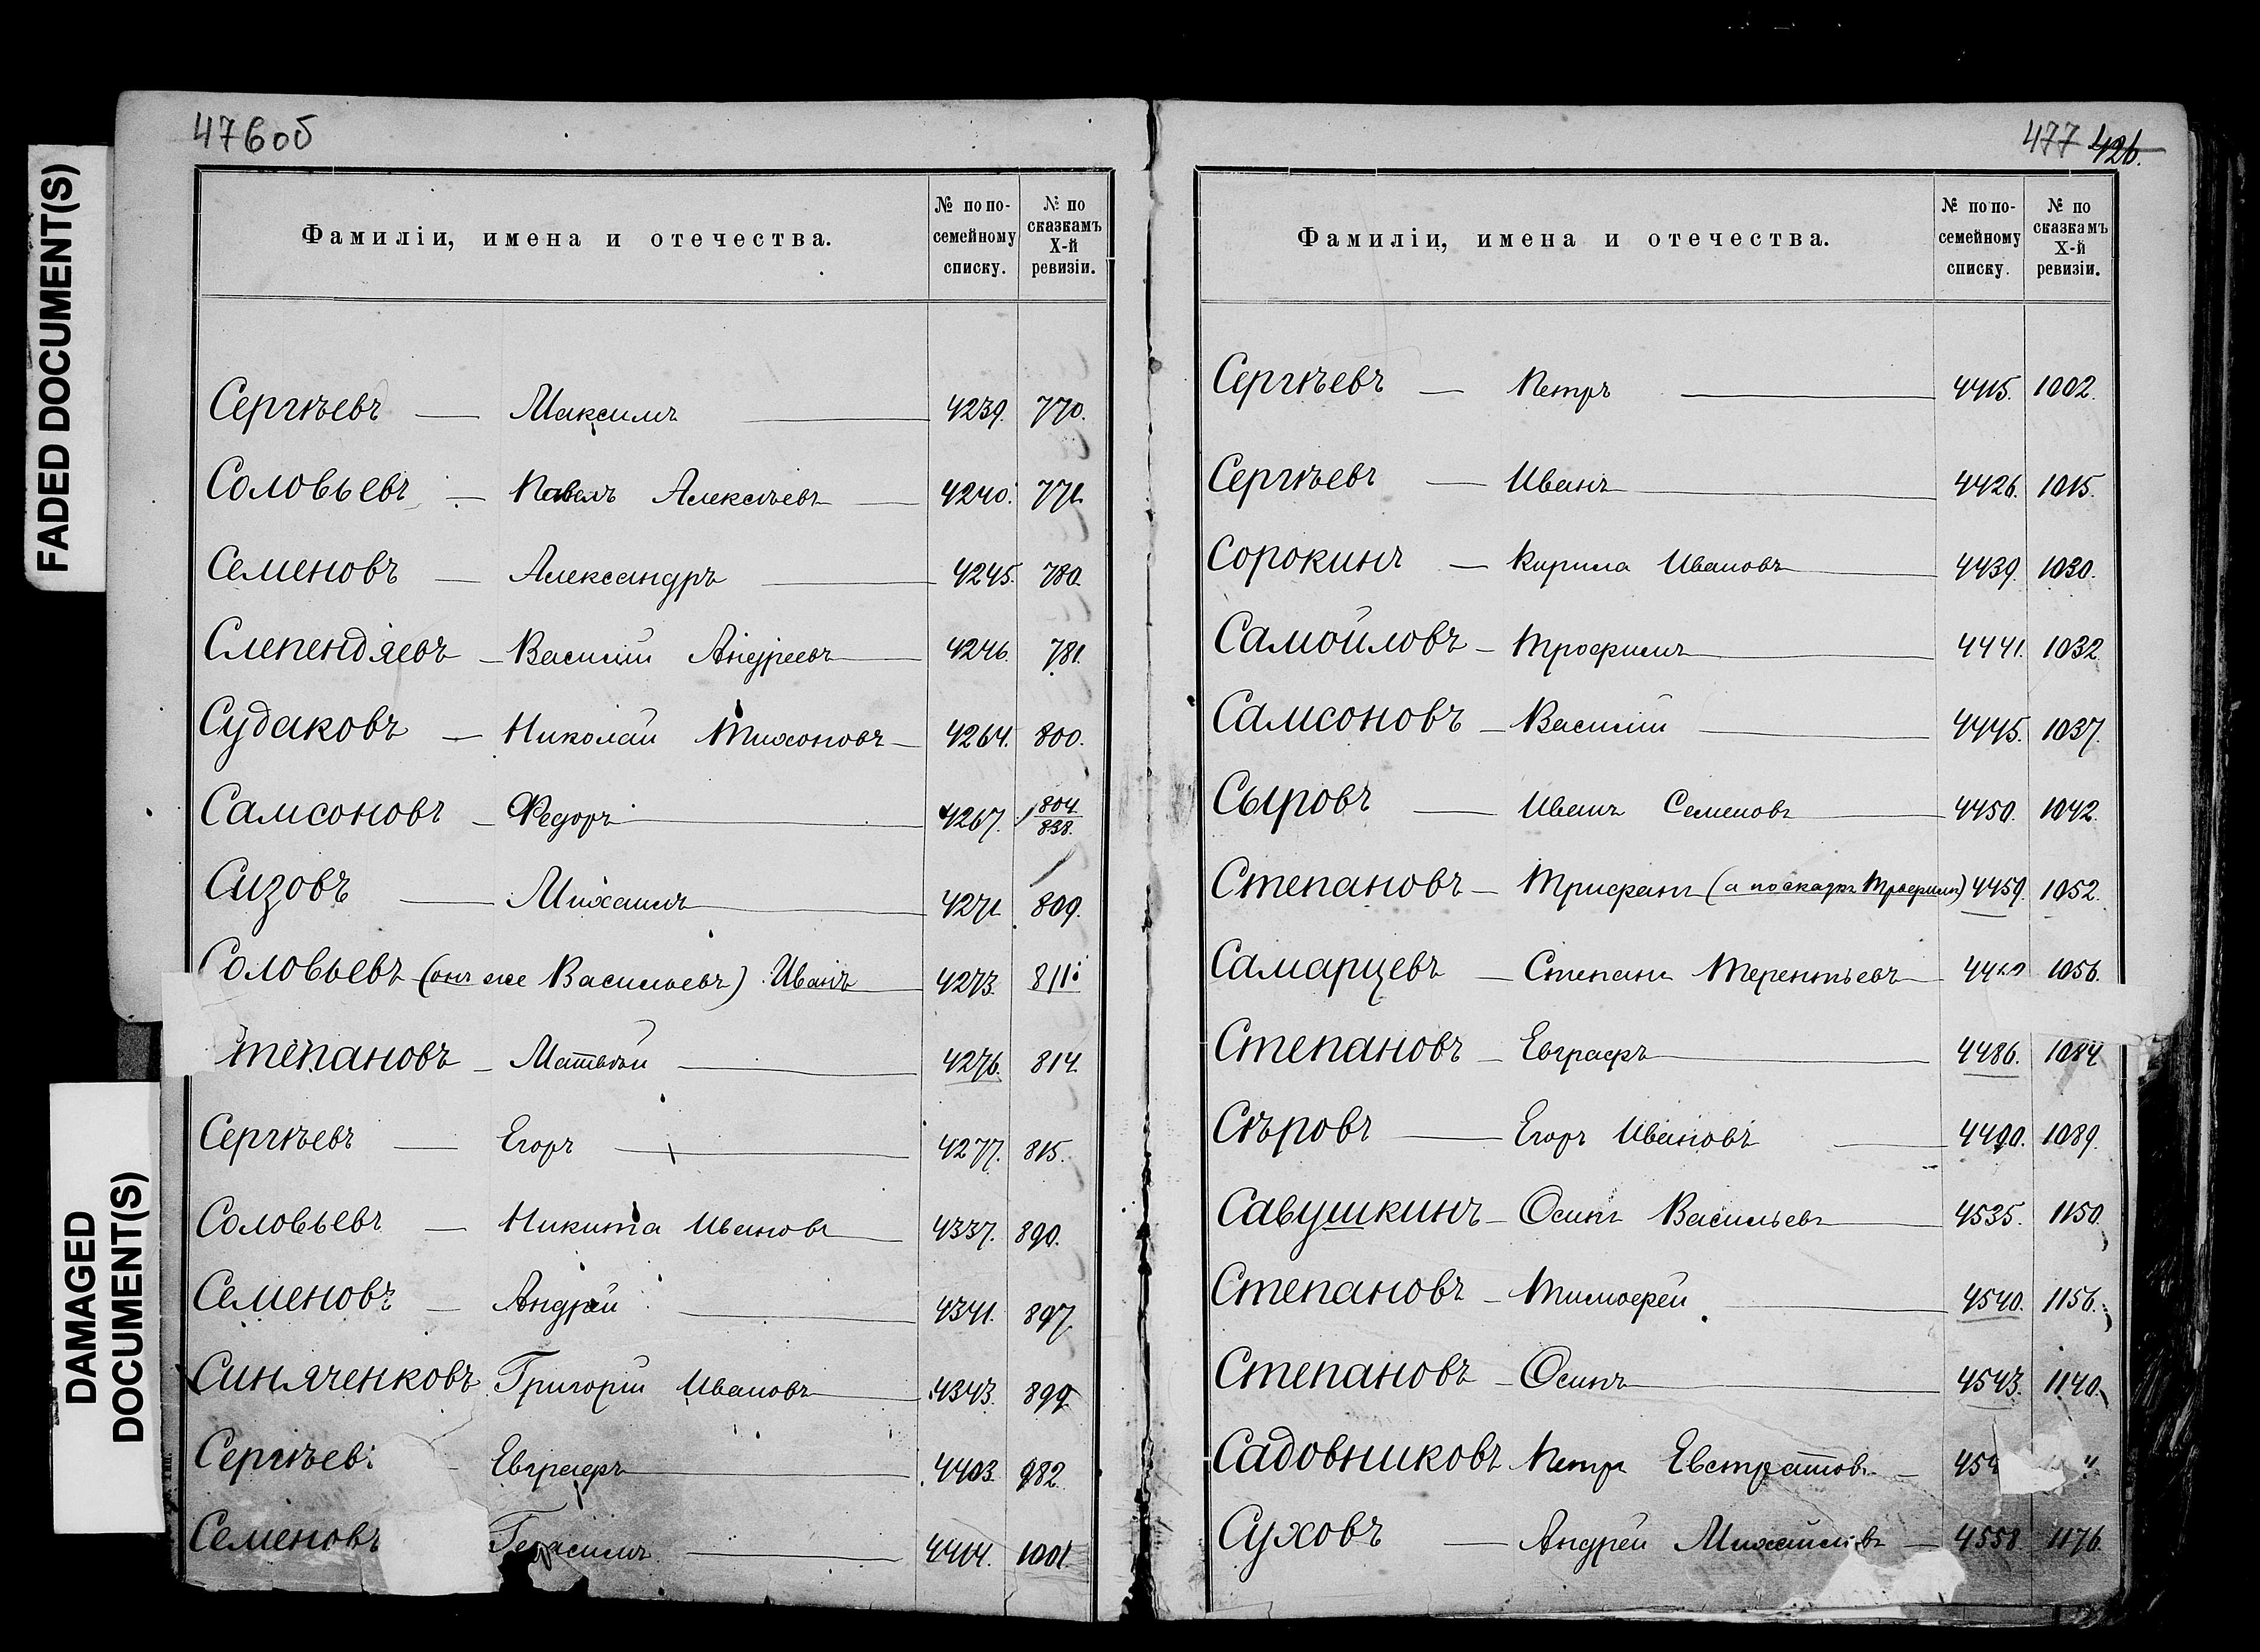 FADED DOCUMENT(S)
DAMAGED
DOCUMENT(S)
476об
Фамиліи, имена и отечества.
№ по по-
семейному
списку.
№ по
сказкамъ
X-й
ревизіи.
Сергѣевъ — Максимъ 4239. 770.
Соловьевъ — Павелъ Алексѣевъ 4240. 771.
Семеновъ — Александръ 4245. 780.
Слепендяевъ — Василій Андреевъ 4246. 781.
Судаковъ — Николай Тихоновъ — 4264. 800.
Самсоновъ — Федоръ 4267. 804/838.
Сизовъ — Михаилъ 4271. 809.
Соловьевъ (онъ же Васильевъ) Иванъ 4273. 811.
тепановъ — Матвѣй — 4276. 814.
Сергѣевъ — Егоръ — 4277. 815.
Соловьевъ — Никита Ивановъ 4337. 890.
Семеновъ — Андрей 4341. 897.
Синяченковъ Григорій Ивановъ 4343. 899.
Сергѣевъ Евграфъ 4403. 982.
Семеновъ Герасимъ — 4414. 1001.
477 426.
Фамиліи, имена и отечества.
№ по по-
семейному
списку.
№ по
сказкамъ
X-й
ревизіи.
Сергѣевъ — Петръ — 4415. 1002.
Сергѣевъ — Иванъ 4426. 1015.
Сорокинъ — Кирила Ивановъ 4439. 1030.
Самойловъ — Трофимъ 4441. 1032.
Самсоновъ — Василій — 4445. 1037.
Сыровъ — Иванъ Семеновъ — 4450. 1042.
Степановъ — Трифанъ (а по сказкѣ Трофимъ) 4459. 1052.
Самарцевъ — Степанъ Терентьевъ 1056.
Степановъ — Евграфъ 4486. 1084.
Сѣровъ — Егоръ Ивановъ — 4490. 1089.
Савушкинъ — Осипъ Васильевъ 4535. 1150.
Степановъ — Тимофей — 4540. 1156.
Степановъ — Осипъ 4543. 1140.
Садовниковъ Петръ Евстратовъ — 454 "
Суховъ — Андрей Михайловъ — 4558. 1176.